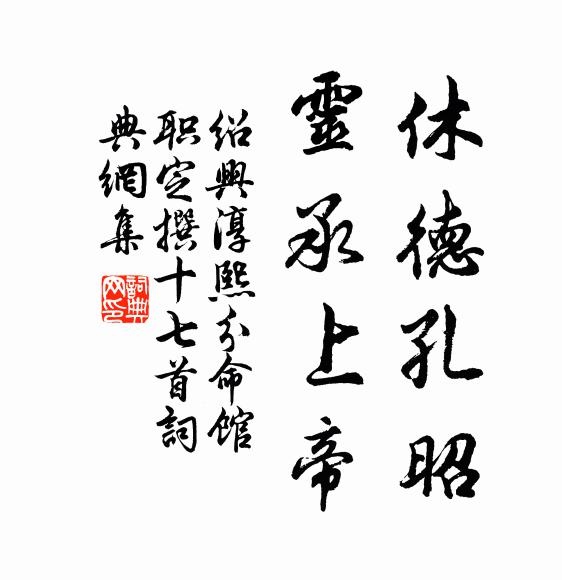 休德孔昭
靈承上帝
紹興淳熙分命館
职定撰十七首詞
典網集
詞典
网印